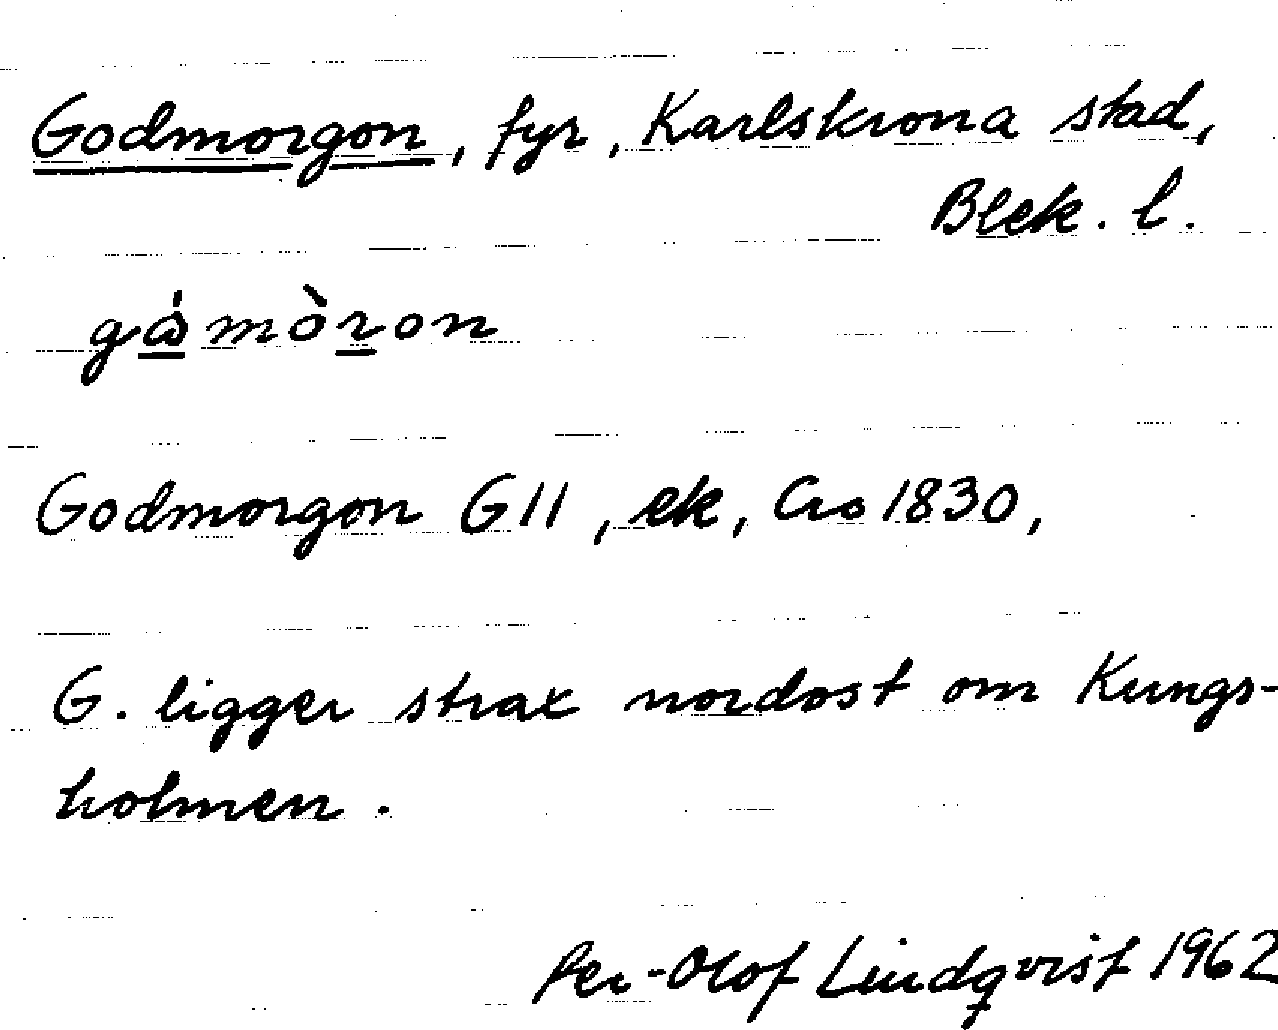 Godmorgon, fyr, Karlskrona stad,
Blek. l.
gåmòron
Godmorgon G11, ek, Cro 1830,
G. ligger strax nordost om Kungs-
holmen.
Per-Olof Lindqvist 1962